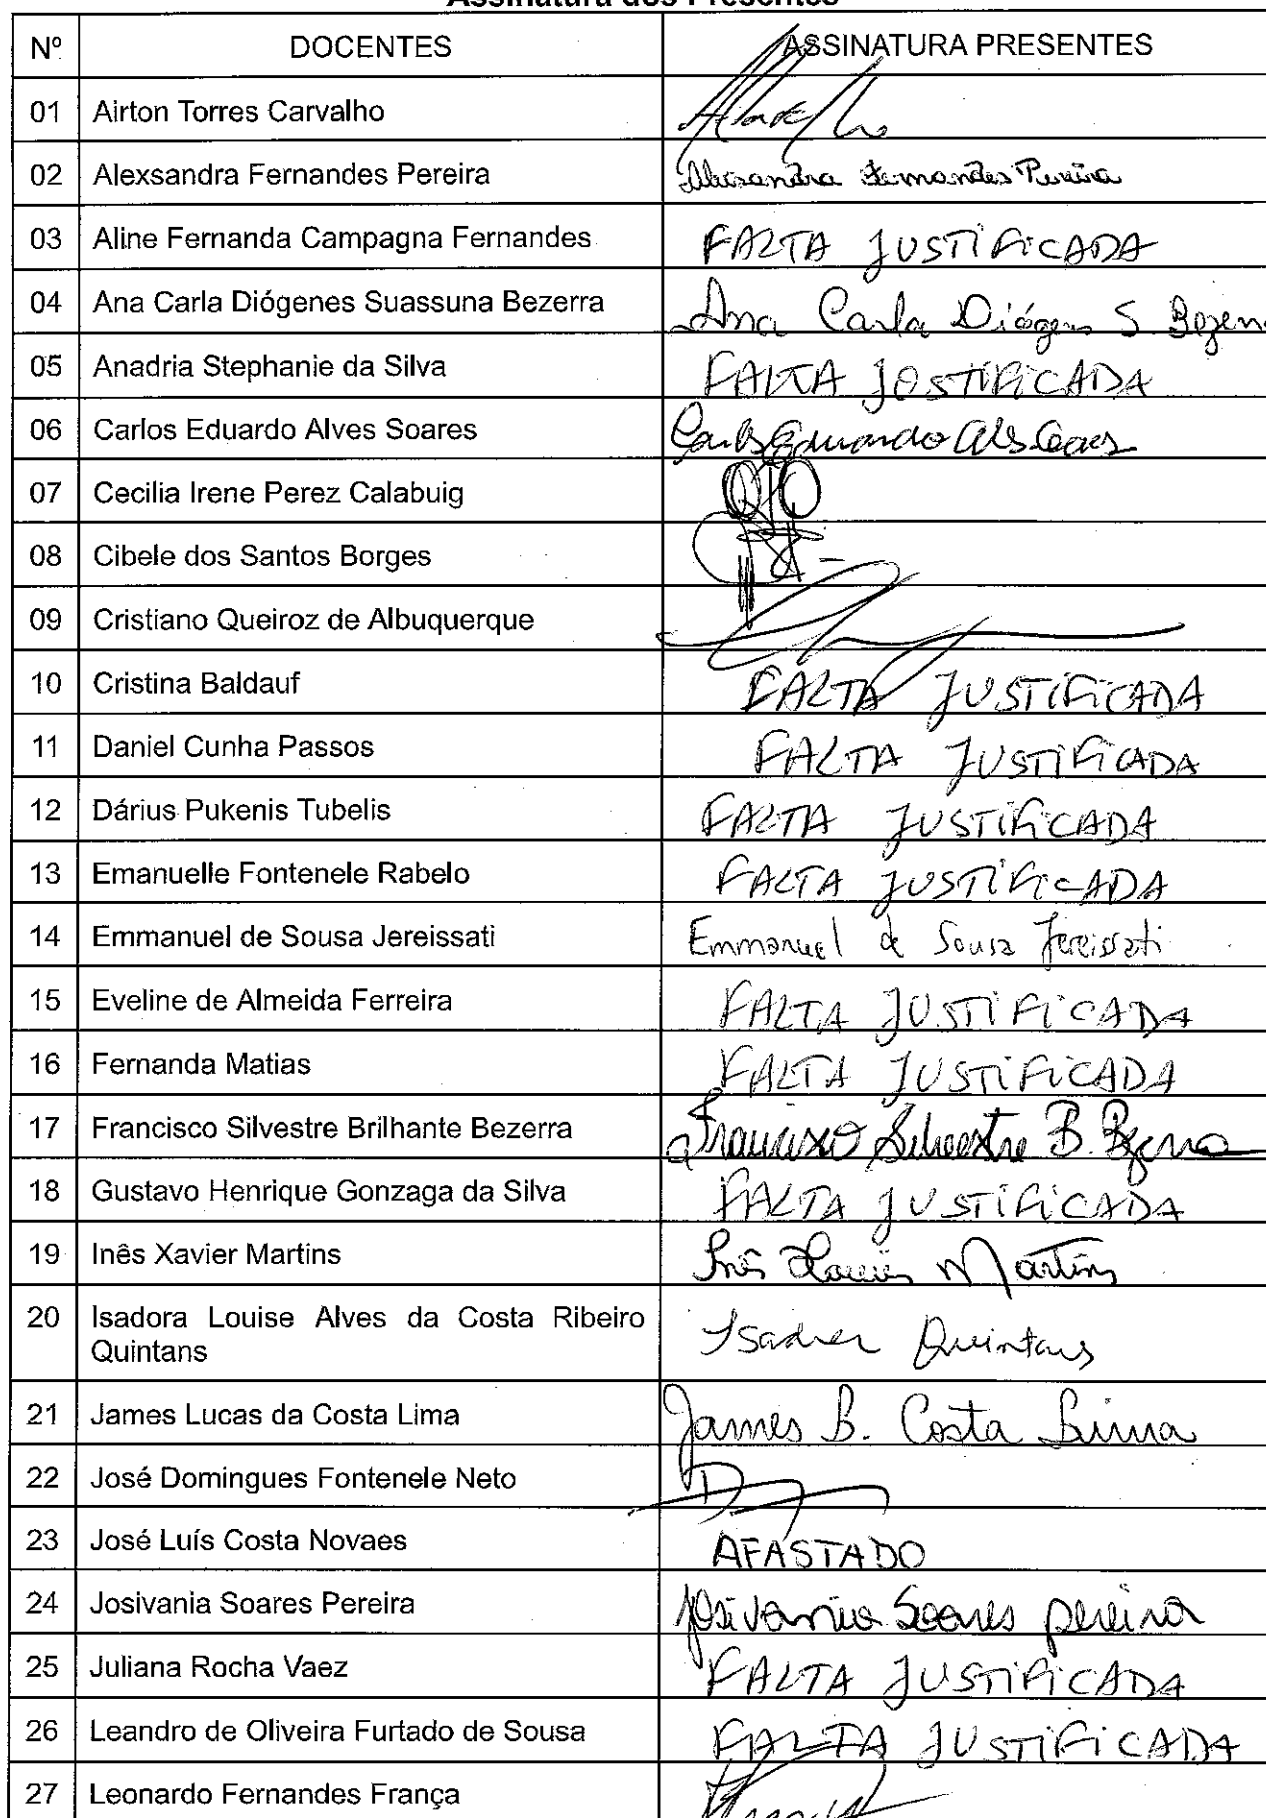 Assinatura dos Presentes
Nº DOCENTES ASSINATURA PRESENTES
01 Airton Torres Carvalho
02 Alexsandra Fernandes Pereira Alexsandra Fernandes Pereira
03 Aline Fernanda Campagna Fernandes FALTA JUSTIFICADA
04 Ana Carla Diógenes Suassuna Bezerra Ana Carla Diógenes S. Bezerra
05 Anadria Stephanie da Silva FALTA JUSTIFICADA
06 Carlos Eduardo Alves Soares Carlos Eduardo Alves Soares
07 Cecilia Irene Perez Calabuig
08 Cibele dos Santos Borges
09 Cristiano Queiroz de Albuquerque
10 Cristina Baldauf FALTA JUSTIFICADA
11 Daniel Cunha Passos FALTA JUSTIFICADA
12 Dárius Pukenis Tubelis FALTA JUSTIFICADA
13 Emanuelle Fontenele Rabelo FALTA JUSTIFICADA
14 Emmanuel de Sousa Jereissati Emmanuel de Sousa Jereissati
15 Eveline de Almeida Ferreira FALTA JUSTIFICADA
16 Fernanda Matias FALTA JUSTIFICADA
17 Francisco Silvestre Brilhante Bezerra Francisco Silvestre B. Bezerra
18 Gustavo Henrique Gonzaga da Silva FALTA JUSTIFICADA
19 Inês Xavier Martins Inês Xavier Martins
20 Isadora Louise Alves da Costa Ribeiro
Quintans Isadora Quintans
21 James Lucas da Costa Lima James L. Costa Lima
22 José Domingues Fontenele Neto
23 José Luís Costa Novaes AFASTADO
24 Josivania Soares Pereira Josivania Soares Pereira
25 Juliana Rocha Vaez FALTA JUSTIFICADA
26 Leandro de Oliveira Furtado de Sousa FALTA JUSTIFICADA
27 Leonardo Fernandes França